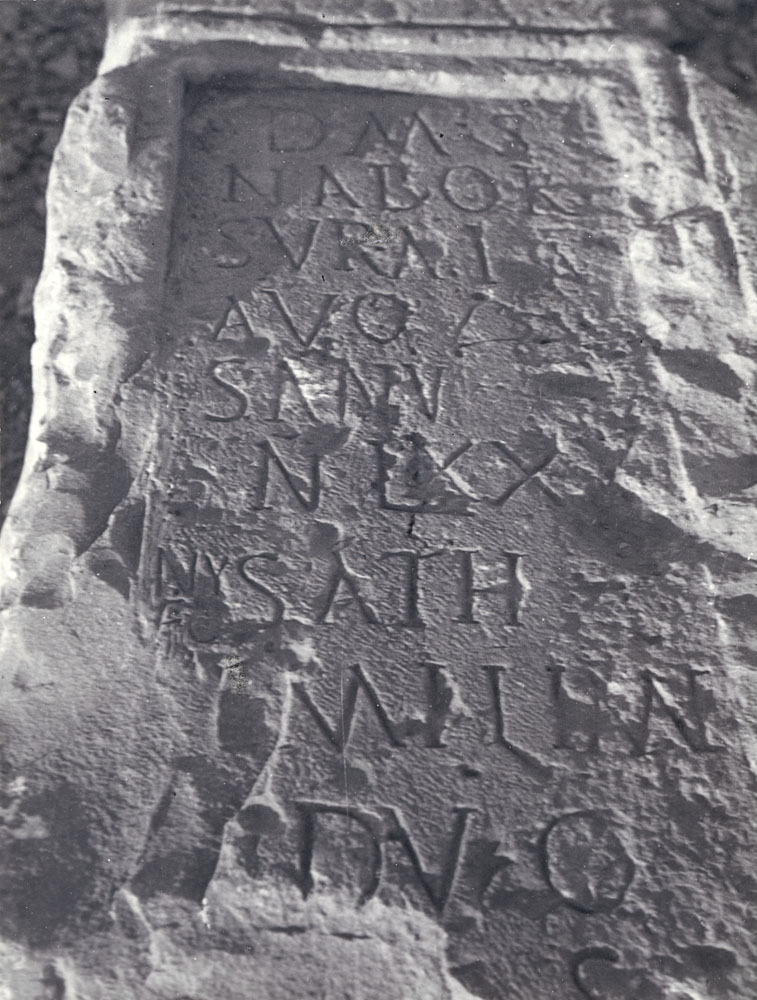 D M S
NABOR
SVRA·I
AVG
SANV
N LXX
NYSATH
MIL IN
DV O
C